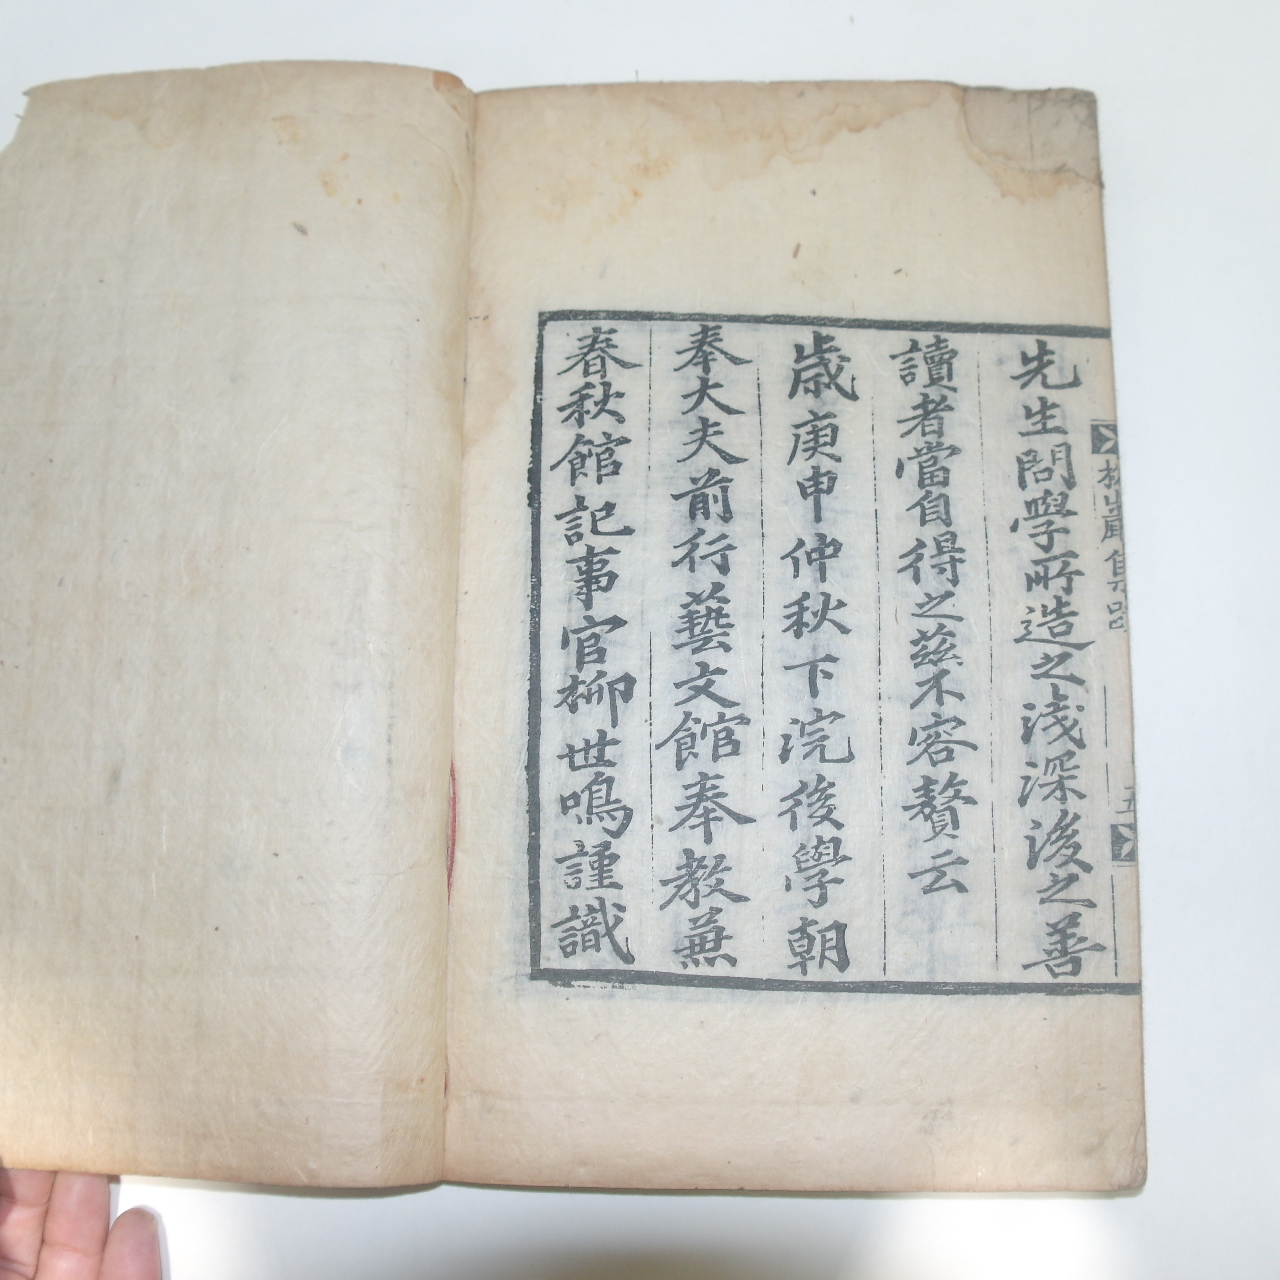 松巖集跋
五
先生問學所造之淺深後之善
讀者當自得之玆不容贅云
歲庚申仲秋下浣後學朝
奉大夫前行藝文館奉教兼
春秋館記事官柳世鳴謹識